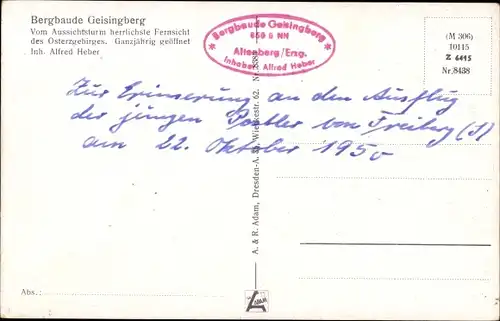 Bergbaude Geisingberg
Vom Aussichtsturm herrlichste Fernsicht
des Osterzgebirges. Ganzjährig geöffnet
Inh. Alfred Heber
Bergbaude Geisingberg
Altenberg/Erzg.
Inhaber: Alfred Heber
(M 306)
10115
Z 6415
Nr. 8438
Zur Erinnerung an den Ausflug
der jungen Postler von Freiberg (S)
am 22. Oktober 1950
A. & R. Adam, Dresden-A.
Abs.:
ADAM